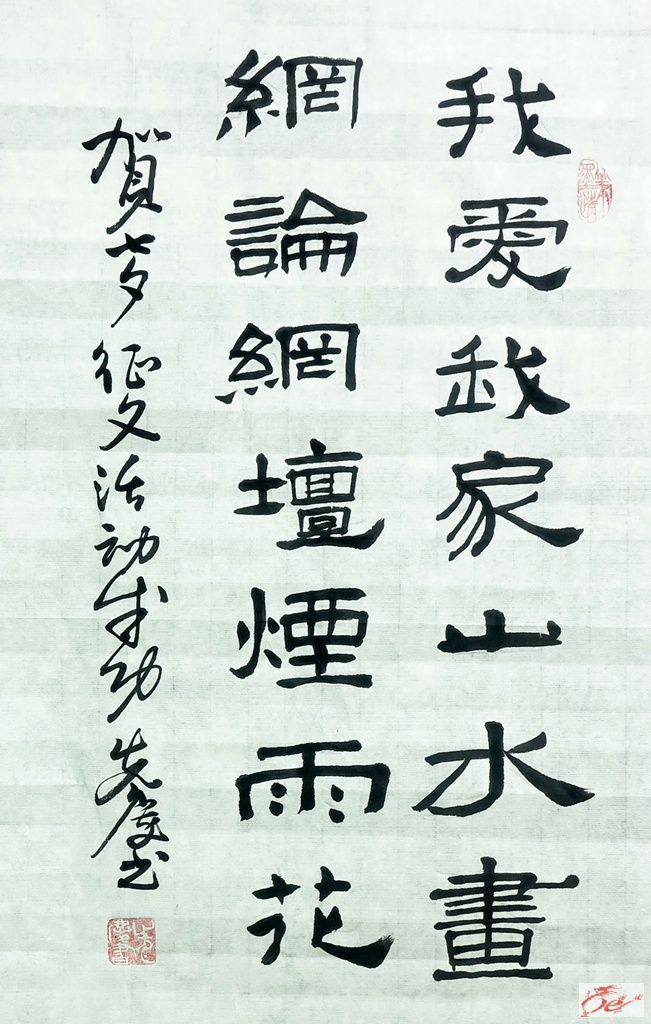 我愛我家山水畫
網論網壇煙雨花
賀七夕征文活动成功 先慶书